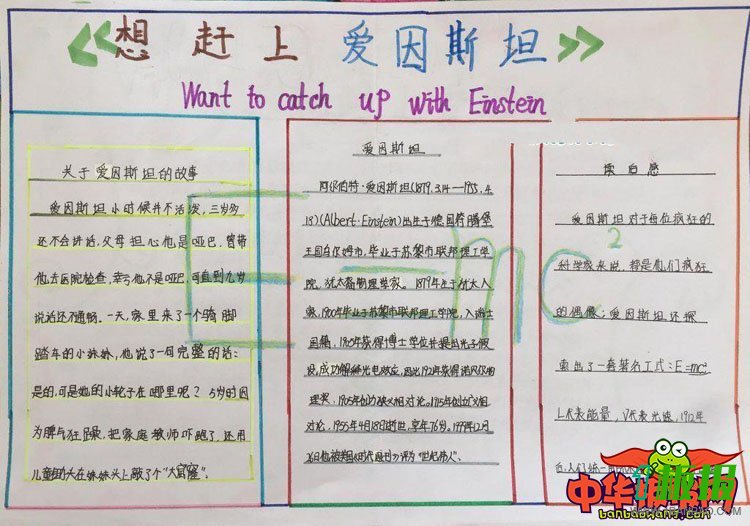 《想 赶 上 爱因斯坦》
Want to catch up with Einstein
关于爱因斯坦的故事
爱因斯坦小时候并不活泼，三岁多
还不会讲话，父母担心他是哑巴，曾带
他去医院检查，幸亏他不是哑巴，可直到九岁
说话还不通畅。一天，家里来了一个骑脚
踏车的小妹妹，他说了一句完整的话：
是的，可是她的小轮子在哪里呢？5岁时因
为脾气狂躁，把家庭教师吓跑了，还用
儿童锄头在妹妹头上敲了个"大窟窿"。
爱因斯坦
阿尔伯特·爱因斯坦(1879.3.14—1955.4.
18)(Albert·Einstein)出生于德国符腾堡
王国乌尔姆市，毕业于苏黎世联邦理工学
院，犹太裔物理学家。1879年生于犹太人
家，1900年毕业于苏黎世联邦理工学院，入瑞士
国籍。1905年获得博士学位并提出光子假
设，成功解释光电效应，因此1921年获得诺贝尔物
理奖，1905年创立狭义相对论。1915年创立广义相
对论，1955年4月18日逝世，享年76岁。1999年12月
26日他被《时代周刊》评为"世纪伟人"。
爱因斯坦对于每位疯狂的
科学家来说，都是他们疯狂
的偶像；爱因斯坦还探
索出了一套著名工式：E=mc²
代表能量，代表光速，
E=mc²
中华 报网
banbaowang.com